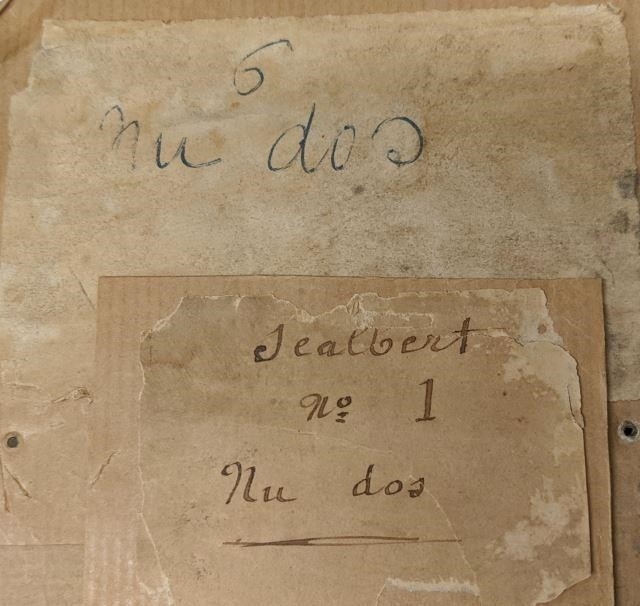 6
Nu dos
Jealbert
Nº 1
Nu dos